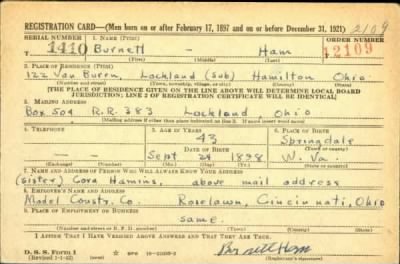 REGISTRATION CARD—(Men born on or after February 17, 1897 and on or before December 31, 1921) 2109
SERIAL NUMBER 1. NAME (Print) ORDER NUMBER
1410 Burnett - Ham 12109
(First) (Middle) (Last)
2. PLACE OF RESIDENCE (Print)
122 Van Buren, Lockland (Sub) Hamilton Ohio
(Number and street) (Town, township, village, or city) (County) (State)
[THE PLACE OF RESIDENCE GIVEN ON THE LINE ABOVE WILL DETERMINE LOCAL BOARD
JURISDICTION; LINE 2 OF REGISTRATION CERTIFICATE WILL BE IDENTICAL]
3. MAILING ADDRESS
Box 504 R.R. 383 Lockland, Ohio
[Mailing address if other than place indicated on line 2. If same insert word same]
4. TELEPHONE 5. AGE IN YEARS 6. PLACE OF BIRTH
43 Springdale
DATE OF BIRTH (Town or county)
- - Sept 29 1898 W. Va.
(Exchange) (Number) (Mo.) (Day) (Yr.) (State or country)
7. NAME AND ADDRESS OF PERSON WHO WILL ALWAYS KNOW YOUR ADDRESS
(sister) Cora Hamins, above mail address
8. EMPLOYER'S NAME AND ADDRESS
Model Constr. Co. Roselawn, Cincinnati, Ohio
9. PLACE OF EMPLOYMENT OR BUSINESS
same.
(Number and street or R. F. D. number) (Town) (County) (State)
I AFFIRM THAT I HAVE VERIFIED ABOVE ANSWERS AND THAT THEY ARE TRUE.
D. S. S. Form 1
(Revised 1-1-42) (over)
Burnett Ham
(Registrant's signature)